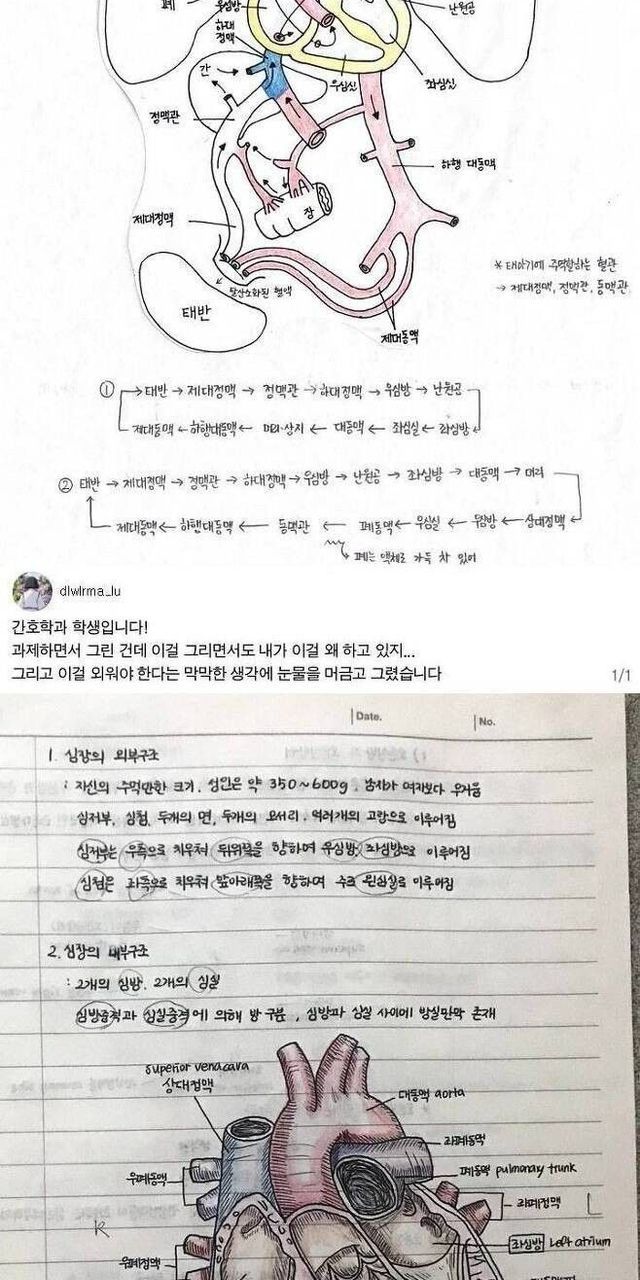 폐
우심방
난원공
하대
정맥
간
우심실
좌심실
정맥관
하행 대동맥
장
제대정맥
탈산소화된 혈액
태반
제대동맥
* 태아기에 주역할하는 혈관
→ 제대정맥, 정맥관, 동맥관
① → 태반 → 제대정맥 → 정맥관 → 하대정맥 → 우심방 → 난원공
제대동맥 ← 하행대동맥 ← 머리·상지 ← 대동맥 ← 좌심실 ← 좌심방
② 태반 → 제대정맥 → 정맥관 → 하대정맥 → 우심방 → 난원공 → 좌심방 → 대동맥 → 머리
제대동맥 ← 하행대동맥 ← 동맥관 ← 폐동맥 ← 우심실 ← 우심방 ← 상대정맥
↳ 폐는 액체로 가득 차 있어
dlwlrma_lu
간호학과 학생입니다!
과제하면서 그린 건데 이걸 그리면서도 내가 이걸 왜 하고 있지...
그리고 이걸 외워야 한다는 막막한 생각에 눈물을 머금고 그렸습니다
1/1
Date.
No.
1. 심장의 외부구조
: 자신의 주먹만한 크기. 성인은 약 350~600g. 남자가 여자보다 무거움
심저부, 심첨, 두개의 면, 두개의 모서리, 여러개의 고랑으로 이루어짐
심저부는 우측으로 치우쳐 뒤위쪽을 향하여 우심방, 좌심방으로 이루어짐
심첨은 좌측으로 치우쳐 앞아래쪽을 향하여 주로 왼심실로 이루어짐
2. 심장의 내부구조
: 2개의 심방. 2개의 심실
심방중격과 심실중격에 의해 방 구분, 심방과 심실 사이에 방실판막 존재
superior venacava
상대정맥
대동맥 aorta
좌폐동맥
폐동맥 pulmonary trunk
우폐동맥
좌폐정맥
L
R
좌심방 Left atrium
우폐정맥